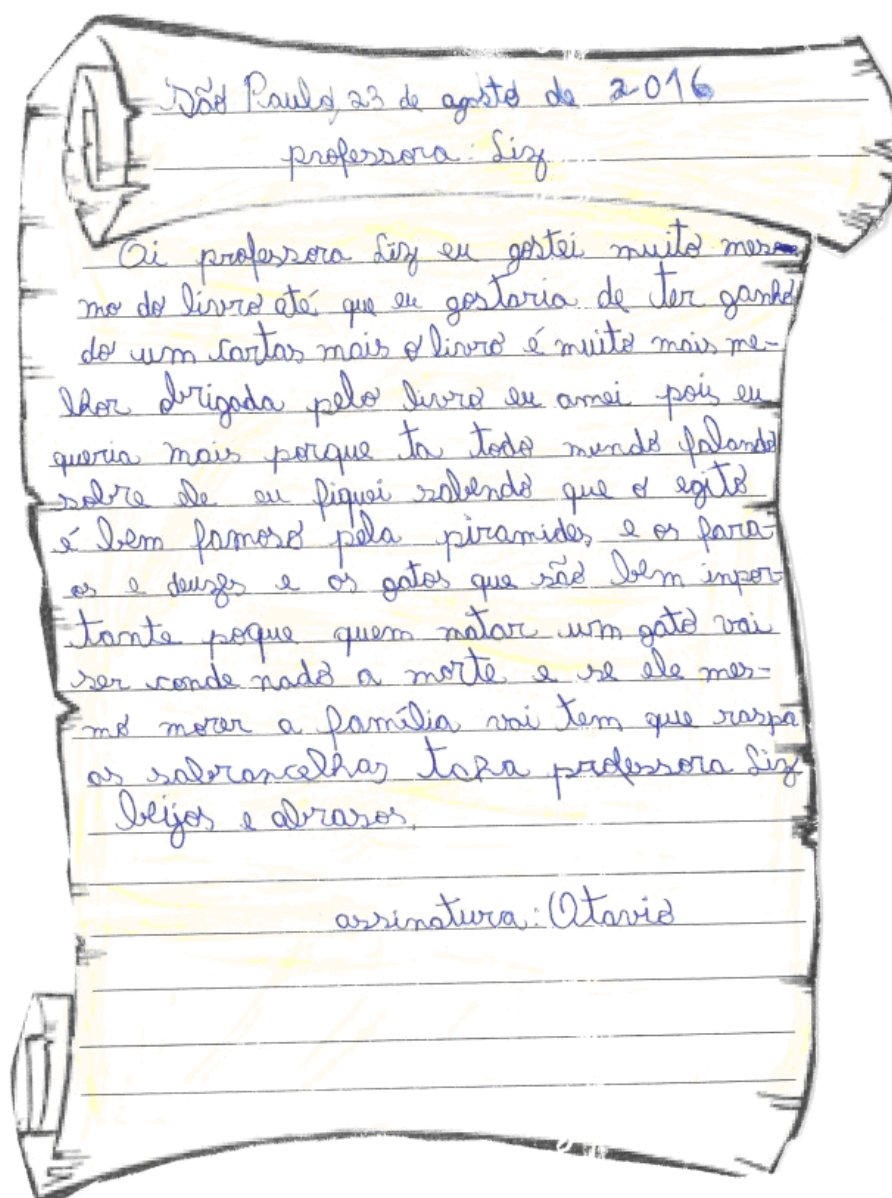 São Paulo, 23 de agosto de 2016
professora: Liz
Oi professora Liz eu gostei muito mes
mo do livro até que eu gostaria de ter ganha
do um cartas mais o livro é muito mais me-
lhor obrigada pelo livro eu amei pois eu
queria mais porque ta todo mundo falando
sobre ele eu fiquei sabendo que o egito
é bem famoso pela piramides e os fara-
os e deuses e os gatos que são bem inpor-
tante poque quem matar um gato vai
ser conde nado a morte e se ele mes-
mo morer a família vai tem que raspa
as sobrancelhas professora Liz
beijos e abrasos.
assinatura: Otavio